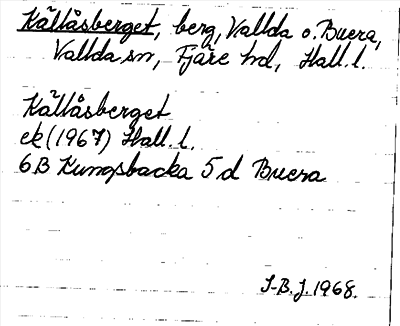 Källåsberget, berg, Vallda o. Buera,
Vallda sn, Fjäre hd, Hall. l.
Källåsberget
ek (1967) Hall. l.
6B Kungsbacka 5 d Buera
I-B. J. 1968.